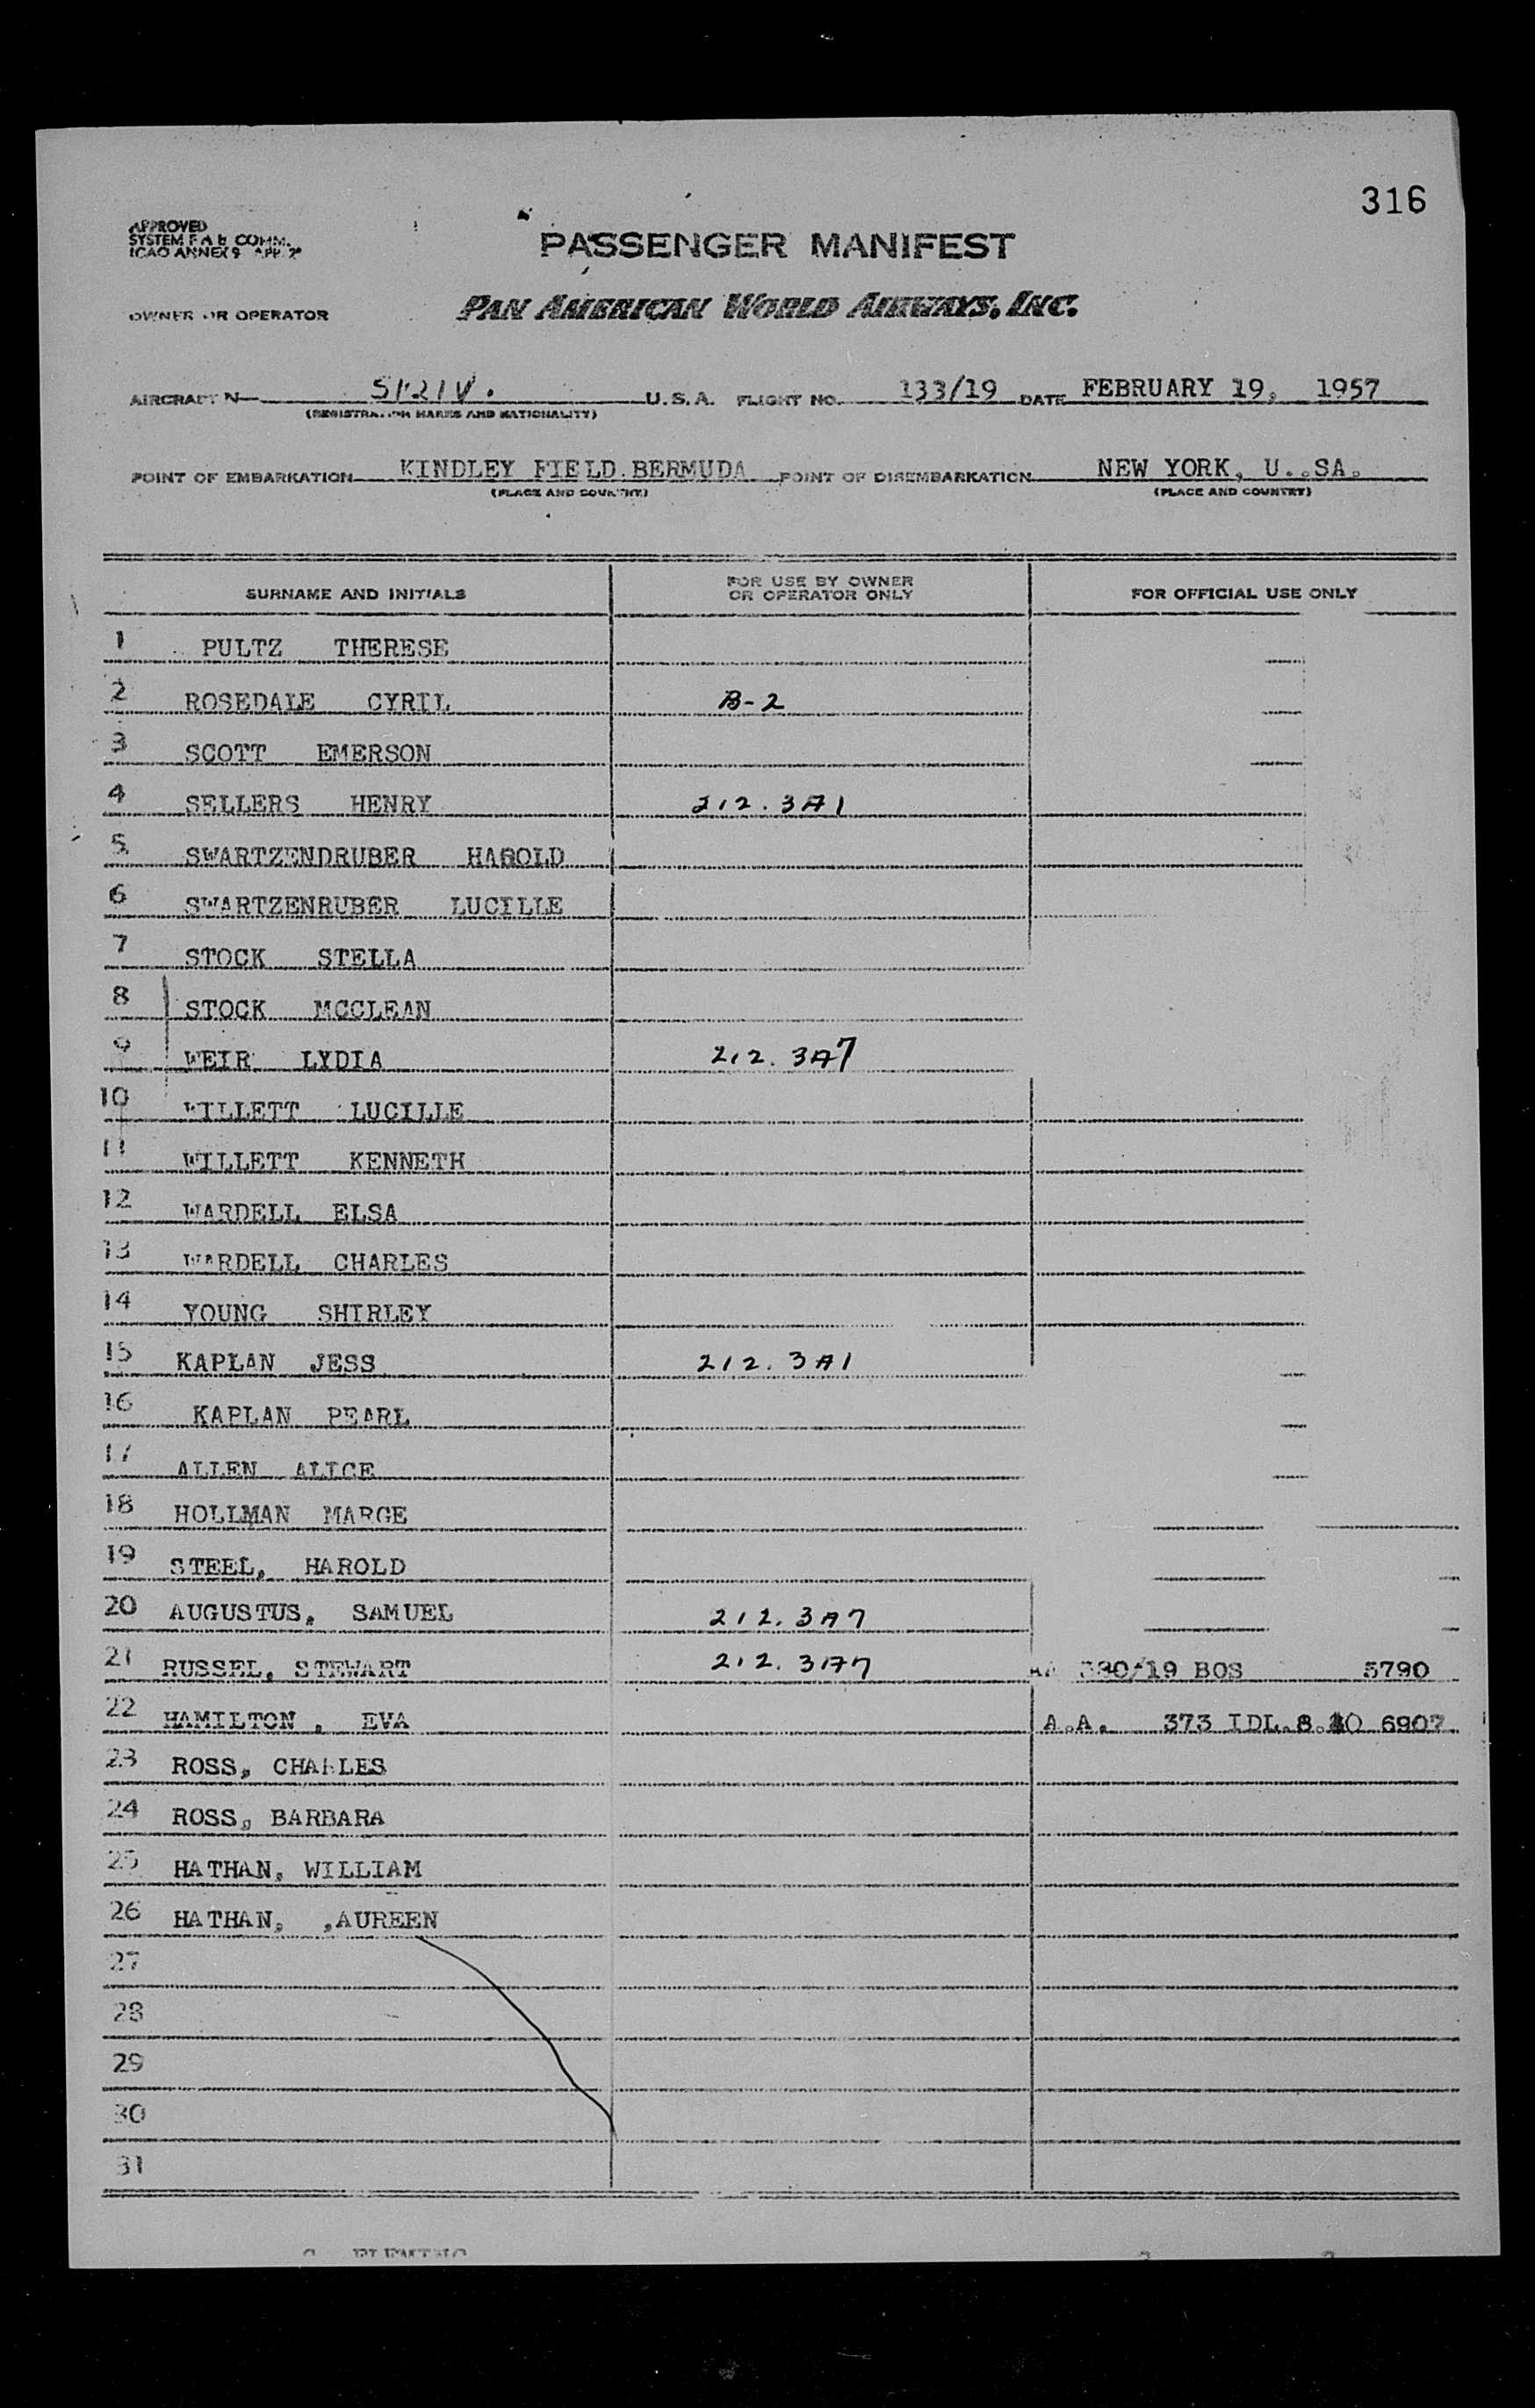 316
APPROVED
SYSTEM F A & COMM.
ICAO ANNEX 9 APP. 2
PASSENGER MANIFEST
OWNER OR OPERATOR PAN AMERICAN WORLD AIRWAYS, INC.
AIRCRAFT N U.S.A. FLIGHT NO. 133/19 DATE FEBRUARY 19, 1957
(REGISTRATION MARKS AND NATIONALITY)
POINT OF EMBARKATION KINDLEY FIELD.BERMUDA POINT OF DISEMBARKATION NEW YORK, U..SA.
(PLACE AND COUNTRY) (PLACE AND COUNTRY)
SURNAME AND INITIALS FOR USE BY OWNER OR OPERATOR ONLY FOR OFFICIAL USE ONLY
1 PULTZ THERESE
2 ROSEDALE CYRIL B-2
3 SCOTT EMERSON
4 SELLERS HENRY 212.3A1
5 SWARTZENDRUBER HAROLD
6 SWARTZENRUBER LUCILLE
7 STOCK STELLA
8 STOCK MCCLEAN
9 WEIR LYDIA 212.3A7
10 WILLETT LUCILLE
11 WILLETT KENNETH
12 WARDELL ELSA
13 WARDELL CHARLES
14 YOUNG SHIRLEY
15 KAPLAN JESS 212.3A1
16 KAPLAN PEARL
17 ALLEN ALICE
18 HOLLMAN MARGE
19 STEEL, HAROLD
20 AUGUSTUS, SAMUEL 212.3A7
21 RUSSEL, STEWART 212.3A7 AA 380/19 BOS 5790
22 HAMILTON , EVA A.A. 373 IDL.8. 6907
23 ROSS, CHARLES
24 ROSS, BARBARA
25 HATHAN, WILLIAM
26 HATHAN, ,AUREEN
27
28
29
30
31